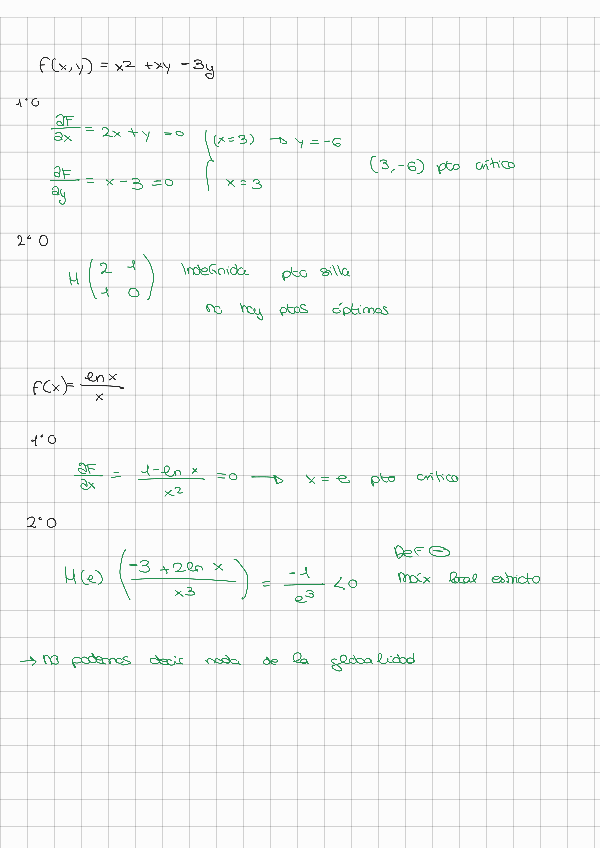 F(x,y) = x2 + xy - 3y
1º O
∂F/∂x = 2x + y = 0 (x = 3) → y = -6
(3, -6) pto crítico
∂F/∂y = x - 3 = 0 x = 3
2º O
H (2 1 Indefinida pto silla
1 0)
no hay ptos óptimos
F(x) = ln x / x
1º O
∂F/∂x = 1 - ln x / x2 = 0 → x = e pto crítico
2º O
DeF ⊖
H(e) (-3 + 2 ln x / x3) = -1 / e3 < 0 máx local estricto
→ no podemos decir nada de la globalidad